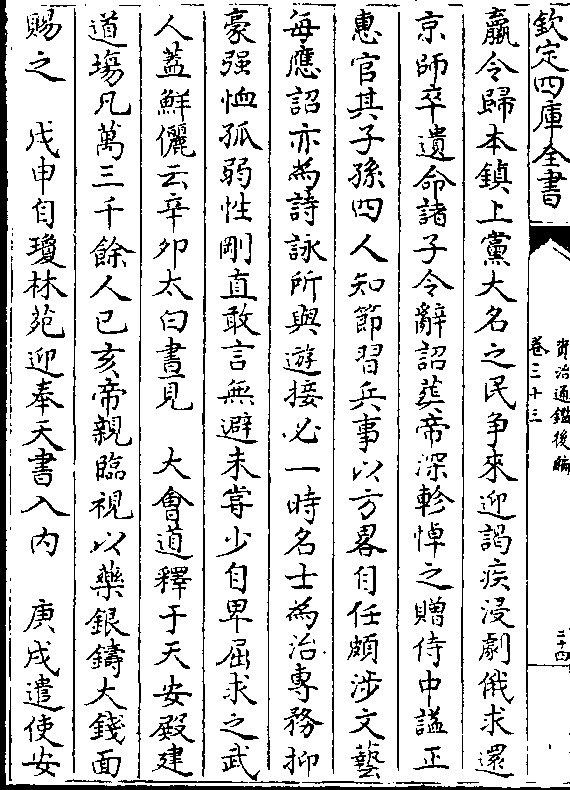 欽定四庫全書
資治通鑑後編
卷三十三
二十四
羸令歸本鎮上黨大名之民爭來迎謁疾浸劇俄求還
京師卒遺命諸子令辭詔葬帝深軫悼之贈侍中諡正
惠官其子孫四人知節習兵事以方畧自任頗涉文藝
每應詔亦為詩詠所與遊接必一時名士為治專務抑
豪强恤孤弱性剛直敢言無避未嘗少自卑屈求之武
人蓋鮮儷云辛卯太白晝見　大會道釋于天安殿建
道塲凡萬三千餘人已亥帝親臨視以藥銀鑄大錢面
賜之　戊申自瓊林苑迎奉天書入内　庚戌遣使安